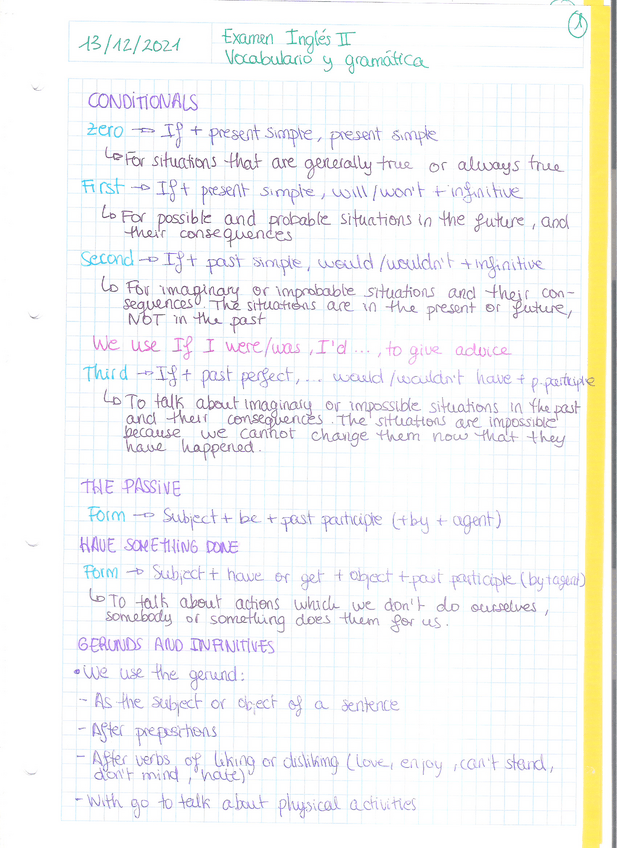 1
13/12/2021
Examen Inglés II
Vocabulario y gramática
CONDITIONALS
Zero → If + present simple, present simple
↳ For situations that are generally true or always true
First → If + present simple, will/won't + infinitive
↳ For possible and probable situations in the future, and
their consequences
Second → If + past simple, would/wouldn't + infinitive
↳ For imaginary or improbable situations and their con-
sequences. The situations are in the present or future,
NOT in the past
We use If I were/was, I'd ..., to give advice
Third → If + past perfect, ... would/wouldn't have + p.participle
↳ To talk about imaginary or impossible situations in the past
and their consequences. The situations are impossible
because we cannot change them now that they
have happened.
THE PASSIVE
Form → Subject + be + past participle (+by + agent)
HAVE SOMETHING DONE
Form → Subject + have or get + object + past participle (by+agent)
↳ To talk about actions which we don't do ourselves,
somebody or something does them for us.
GERUNDS AND INFINITIVES
• We use the gerund:
- As the subject or object of a sentence
- After prepositions
- After verbs of liking or disliking (love, enjoy, can't stand,
don't mind, hate)
- With go to talk about physical activities